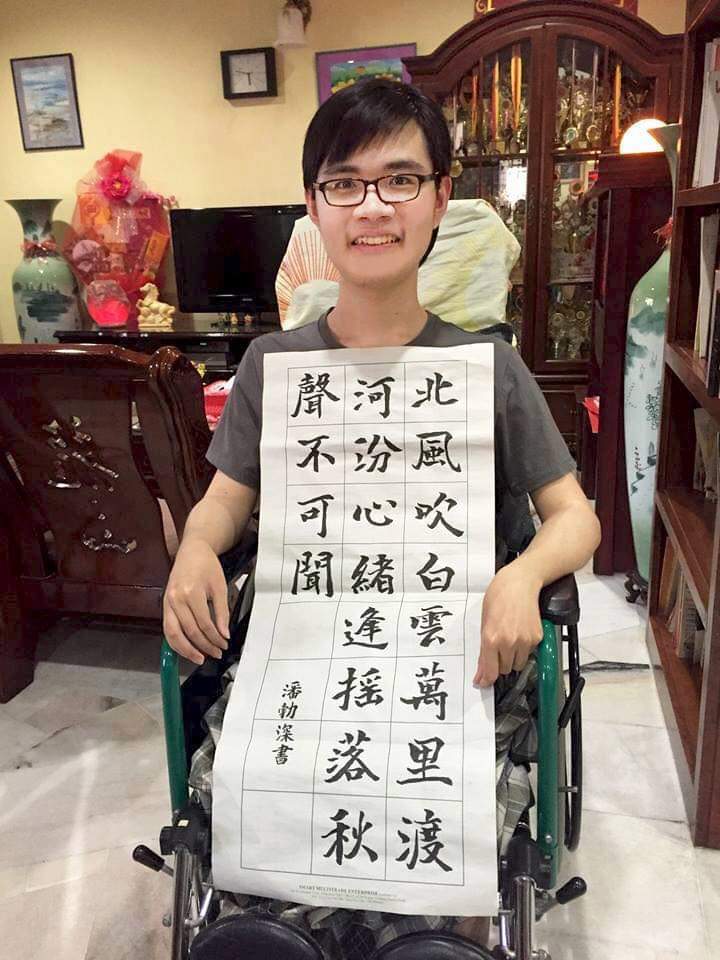 北風吹白雲萬里渡
河汾心緒逢摇落秋
聲不可聞
潘勃深書
SMART MULTITRADE ENTERPRISE